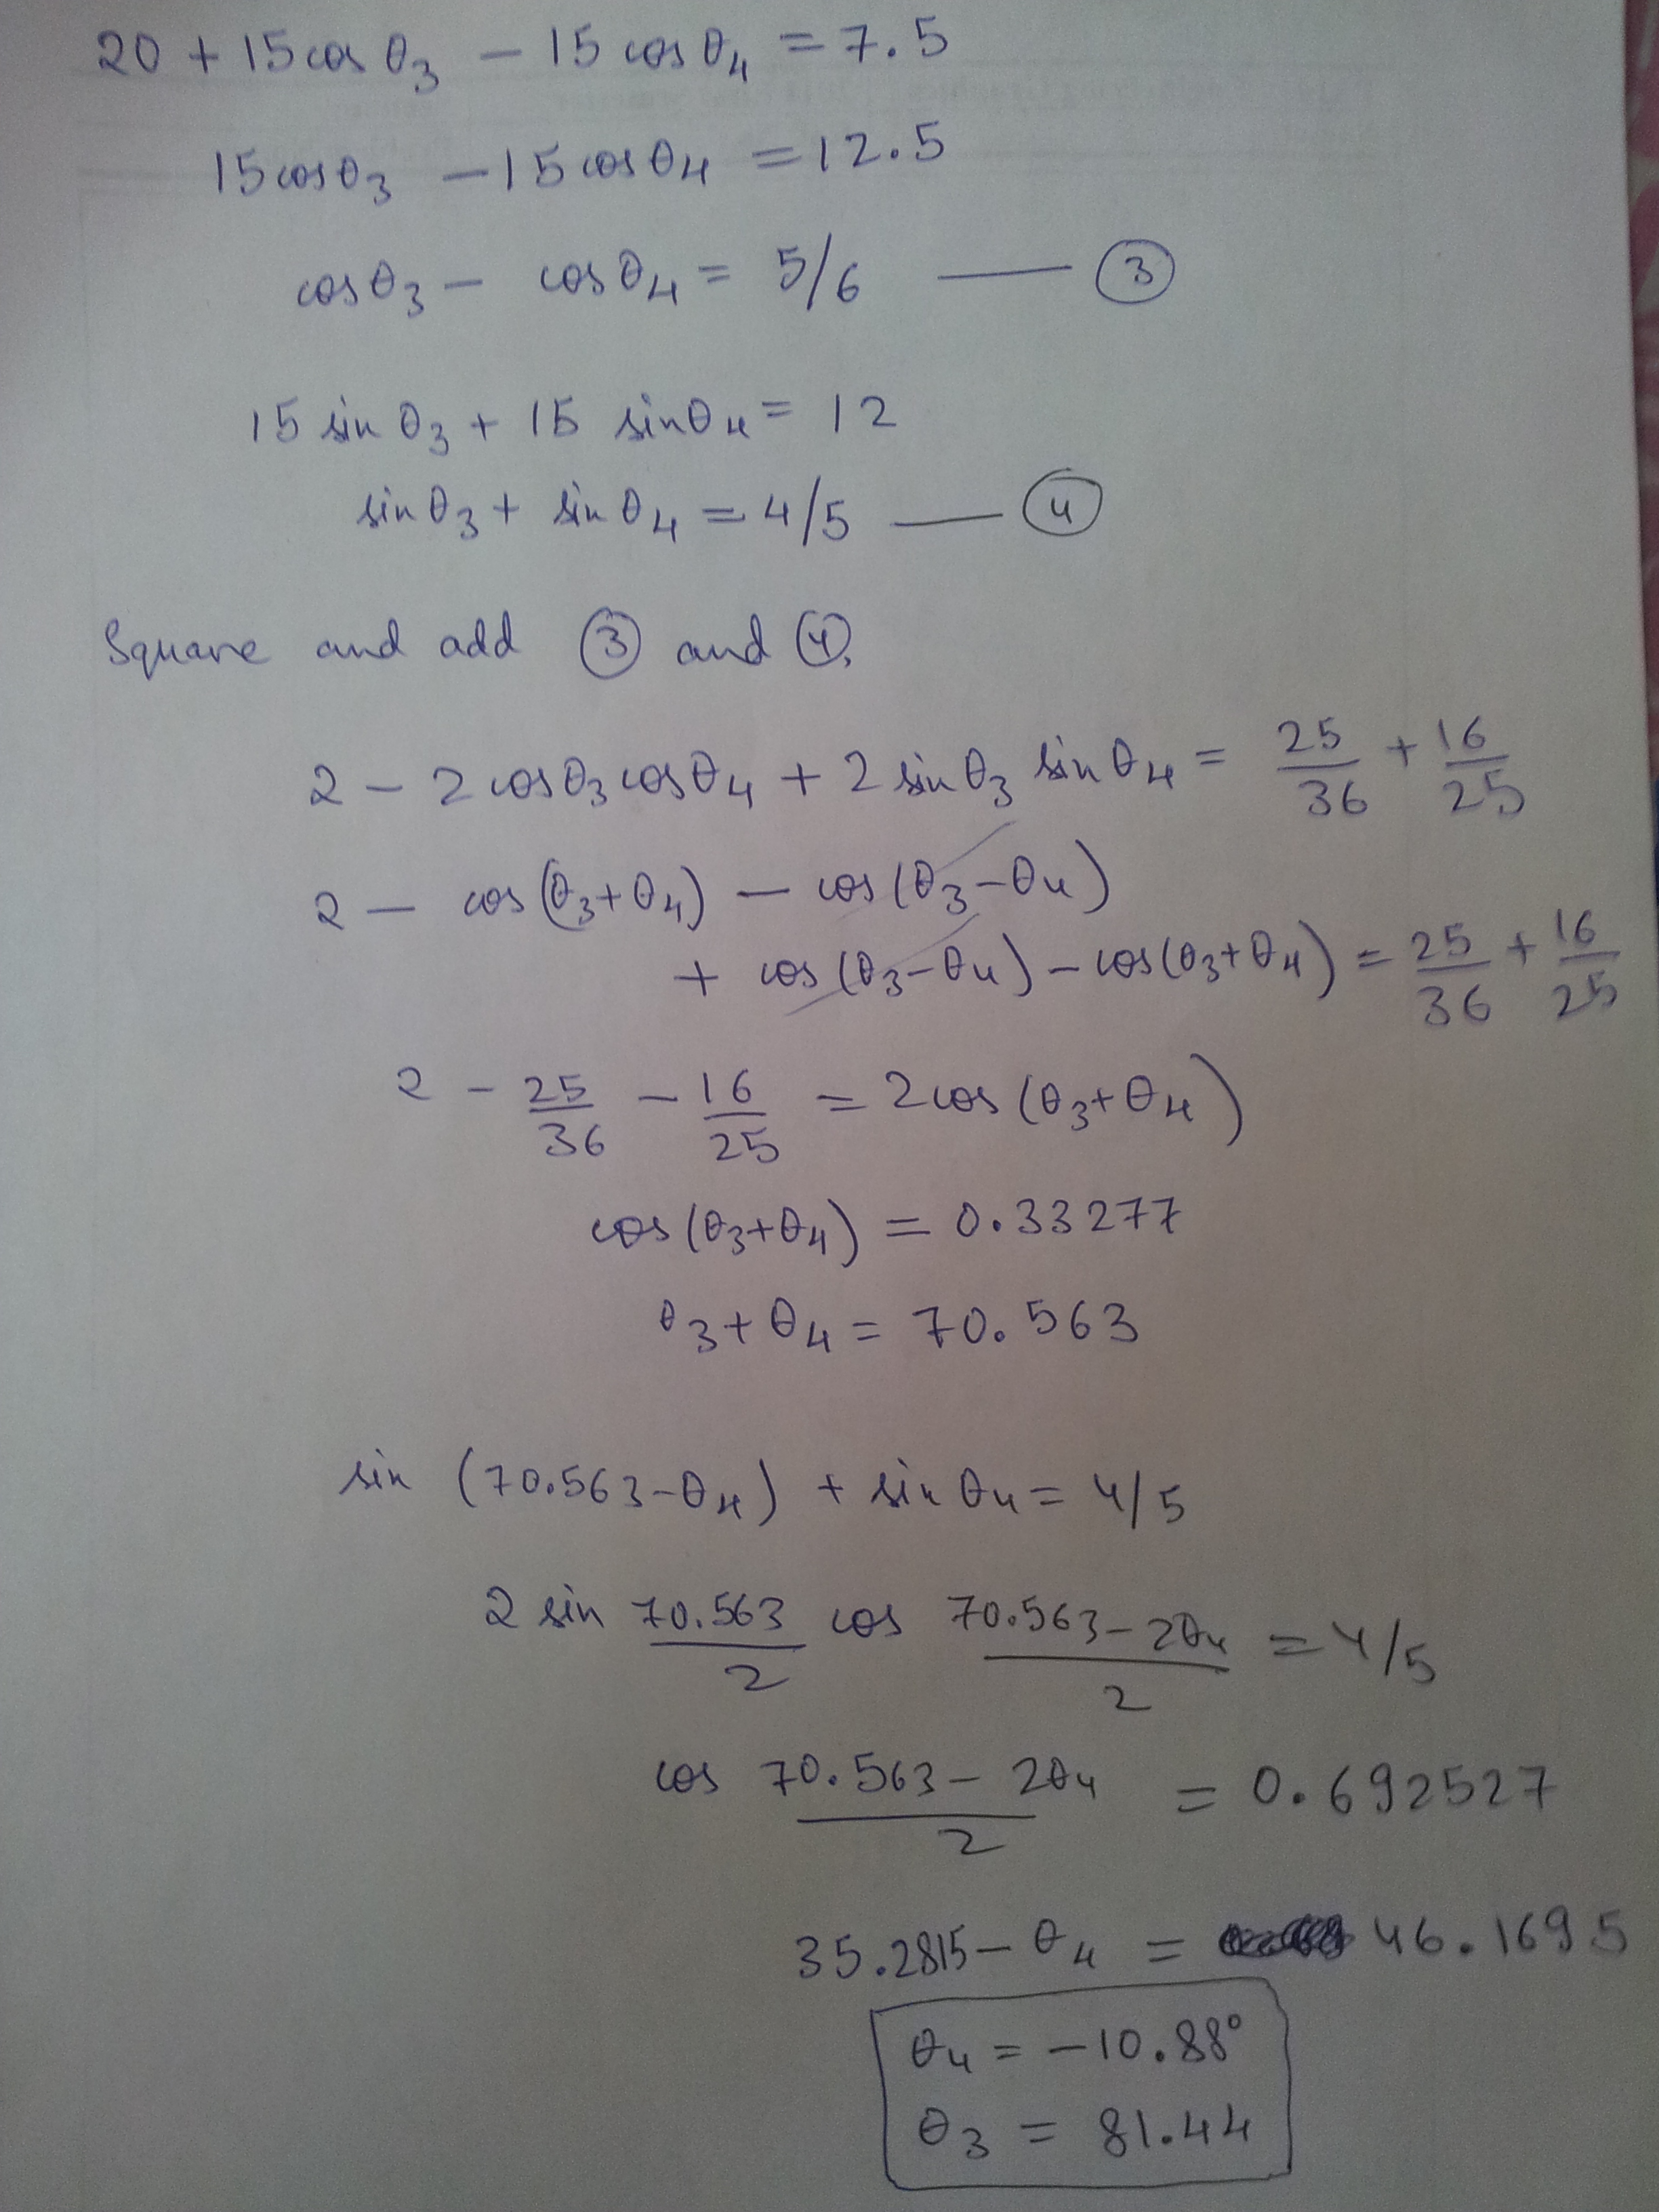 20 + 15 cos θ₃ − 15 cos θ₄ = 7.5
15 cos θ₃ − 15 cos θ₄ = 12.5
cos θ₃ − cos θ₄ = 5/6 —— ③
15 sin θ₃ + 15 sin θ₄ = 12
sin θ₃ + sin θ₄ = 4/5 —— ④
Square and add ③ and ④,
2 − 2 cos θ₃ cos θ₄ + 2 sin θ₃ sin θ₄ = 25/36 + 16/25
2 − cos (θ₃ + θ₄) − cos (θ₃ − θ₄)
+ cos (θ₃ − θ₄) − cos (θ₃ + θ₄) = 25/36 + 16/25
2 − 25/36 − 16/25 = 2 cos (θ₃ + θ₄)
cos (θ₃ + θ₄) = 0.33277
θ₃ + θ₄ = 70.563
sin (70.563 − θ₄) + sin θ₄ = 4/5
2 sin 70.563/2 cos 70.563 − 2θ₄/2 = 4/5
cos 70.563 − 2θ₄/2 = 0.692527
35.2815 − θ₄ = 46.1695
θ₄ = −10.88°
θ₃ = 81.44